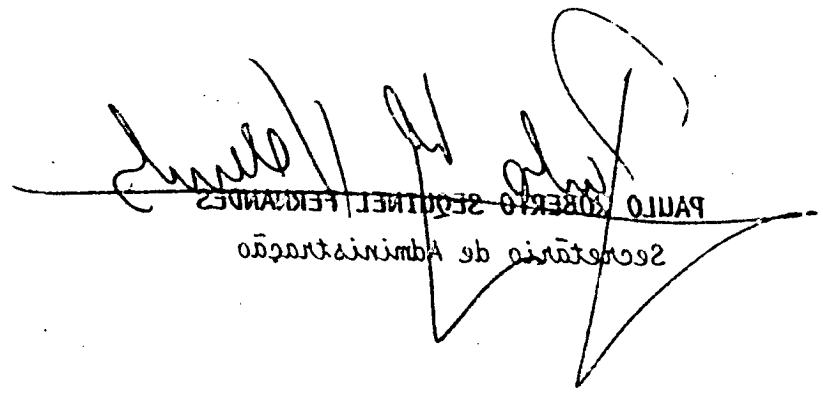 PAULO ROBERTO SEQUINEL FERNANDES
Secretário de Administração